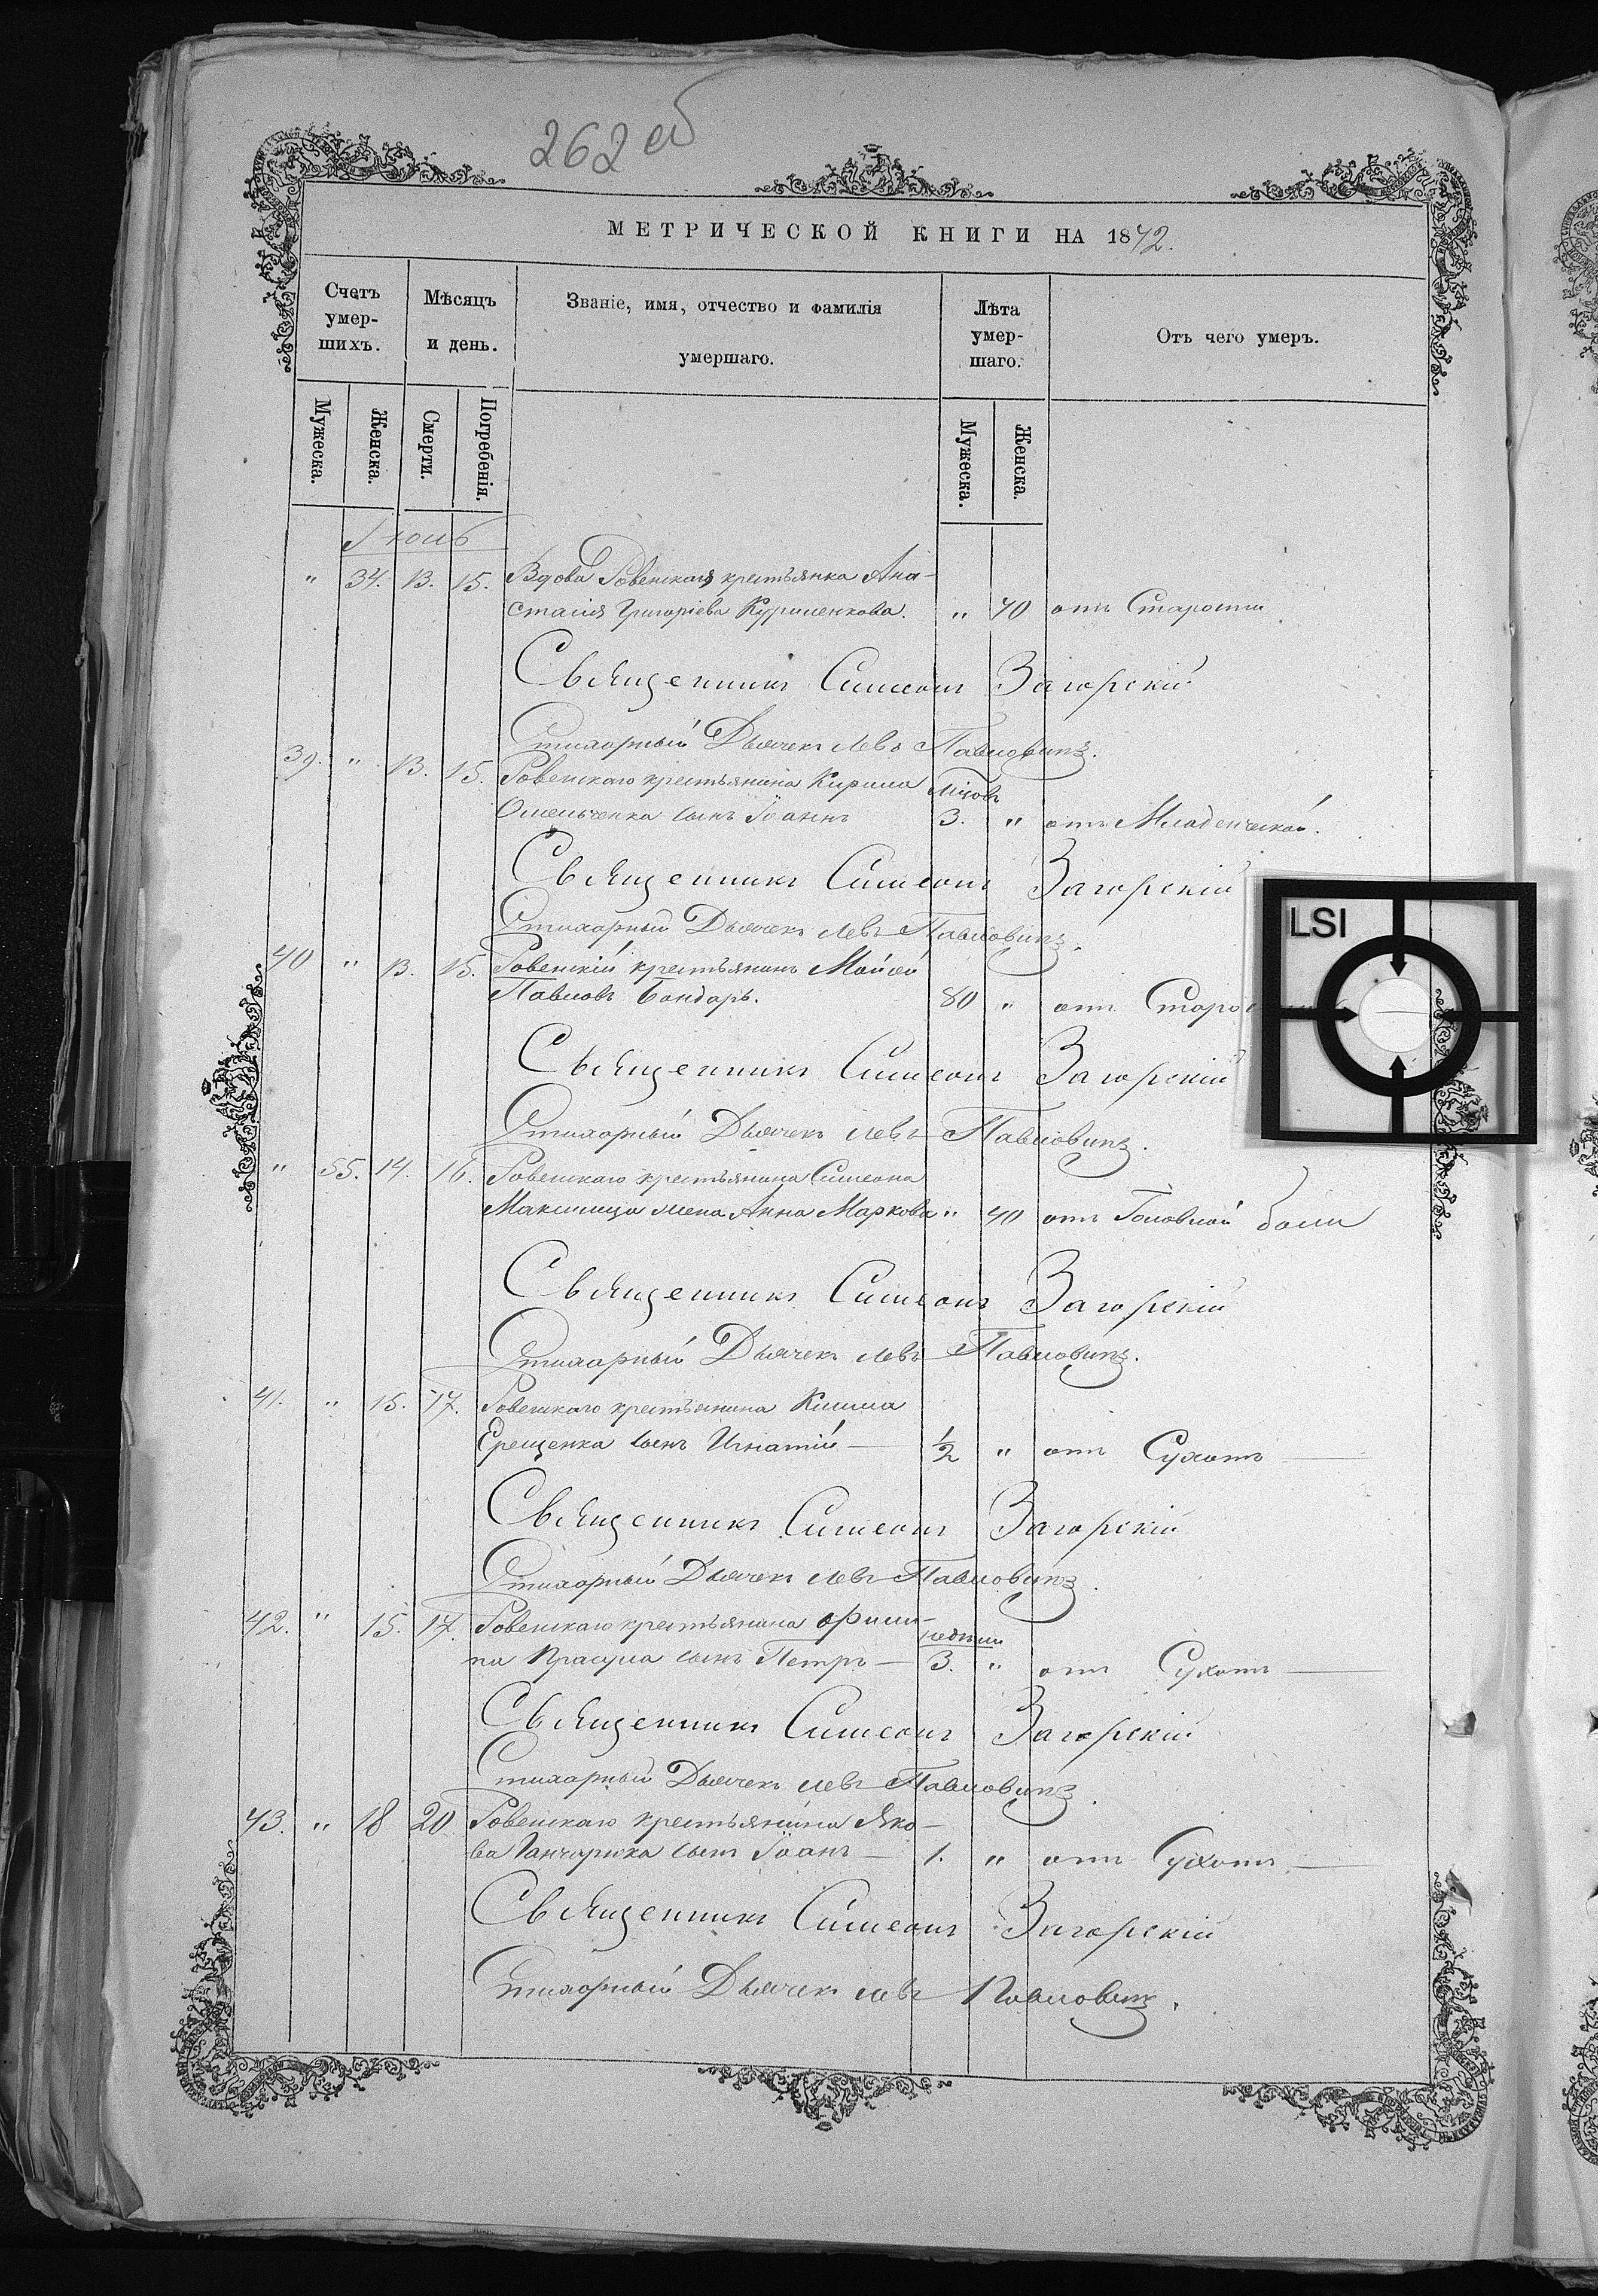 262 об
МЕТРИЧЕСКОЙ КНИГИ НА 1872.
Счетъ умер- шихъ.
Мѣсяцъ и день.
Званіе, имя, отчество и фамилія умершаго.
Лѣта умер- шаго.
Отъ чего умеръ.
Мужеска. Женска. Смерти. Погребенія. Мужеска. Женска.
Іюль
" 34. 13. 15. Вдова Ровенская крестьянка Ана-
стасія Григоріева Куриленкова. " 70 отъ Старости
Священникъ Симеонъ Загорскій
Стихарный Дьячекъ Левъ Павловичъ.
39. " 13. 15. Ровенскаго крестьянина Кирила
Омельченка сынъ Іоаннъ 3. " отъ Младенческой.
Священникъ Симеонъ Загорскій
Стихарный Дьячекъ Левъ Павловичъ.
40 " 13. 15. Ровенскій крестьянинъ Мойсей
Павловъ Бондарь. 80 " отъ Старос
LSI
Священникъ Симеонъ Загорскій
Стихарный Дьячекъ Левъ Павловичъ.
" 55. 14. 16. Ровенскаго крестьянина Симеона
жена Анна Маркова " 40 отъ Головной боли
Священникъ Симеонъ Загорскій
Стихарный Дьячекъ Левъ Павловичъ.
41. " 15. 17. Ровенскаго крестьянина Клима
Ерещенка сынъ Игнатій — ½ " отъ Сухотъ —
Священникъ Симеонъ Загорскій
Стихарный Дьячекъ Левъ Павловичъ.
42. " 15. 17. Ровенскаго крестьянина Фили-
недѣли
па сынъ Петръ — 3. " отъ Сухотъ —
Священникъ Симеонъ Загорскій
Стихарный Дьячекъ Левъ Павловичъ.
43. " 18 20 Ровенскаго крестьянина Яко-
ва сынъ Іоанъ — 1. " отъ Сухотъ —
Священникъ Симеонъ Загорскій
Стихарный Дьячекъ Левъ Павловичъ.